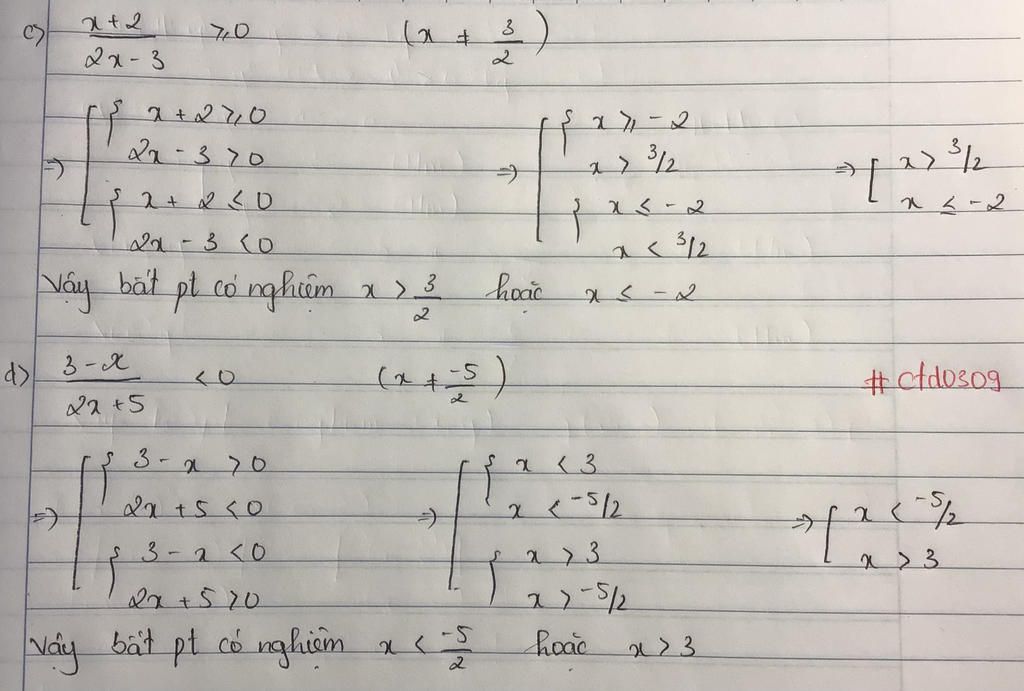 c) x+2 / 2x-3 ≥ 0 (x ≠ 3/2)
=> [ { x + 2 ≥ 0 => [ { x ≥ -2 => [ x > 3/2
2x - 3 > 0 x > 3/2 x ≤ -2
{ x + 2 ≤ 0 { x ≤ -2
2x - 3 < 0 x < 3/2
Vậy bất pt có nghiệm x > 3/2 hoặc x ≤ -2
d) 3-x / 2x+5 < 0 (x ≠ -5/2)
#ctd0309
=> [ { 3 - x > 0 => [ { x < 3 => [ x < -5/2
2x + 5 < 0 x < -5/2 x > 3
{ 3 - x < 0 { x > 3
2x + 5 > 0 x > -5/2
Vậy bất pt có nghiệm x < -5/2 hoặc x > 3